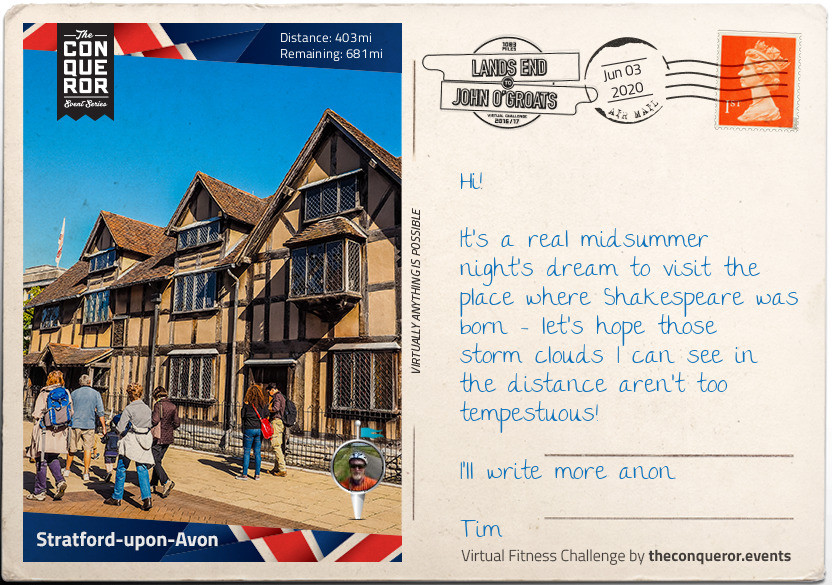 The
CON
QUE
ROR
Event Series
Distance: 403mi
Remaining: 681mi
Stratford-upon-Avon
VIRTUALLY ANYTHING IS POSSIBLE
1083
MILES
LANDS END
TO
JOHN O'GROATS
VIRTUAL CHALLENGE
2016/17
Jun 03
2020
AIR MAIL
1ST
Hi!
It's a real midsummer
night's dream to visit the
place where Shakespeare was
born - let's hope those
storm clouds I can see in
the distance aren't too
tempestuous!
I'll write more anon
Tim
Virtual Fitness Challenge by theconqueror.events